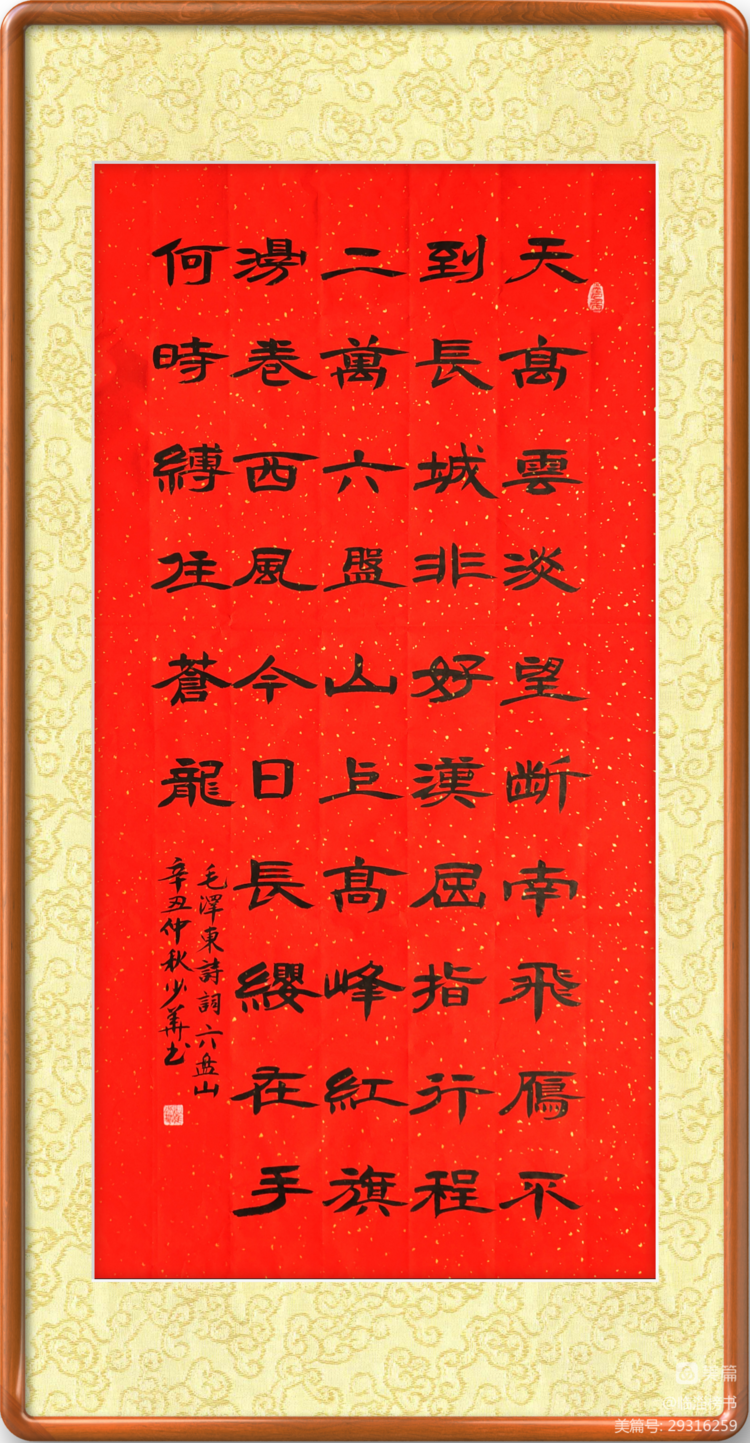 天高雲淡望断南飛鴈不
到長城非好漢屈指行程
二萬六盤山上高峰紅旗
漫巻西風今日長纓在手
何時縛住蒼龍
毛澤東詩詞六盘山
辛丑仲秋少華书
美篇
美篇号: 29316259